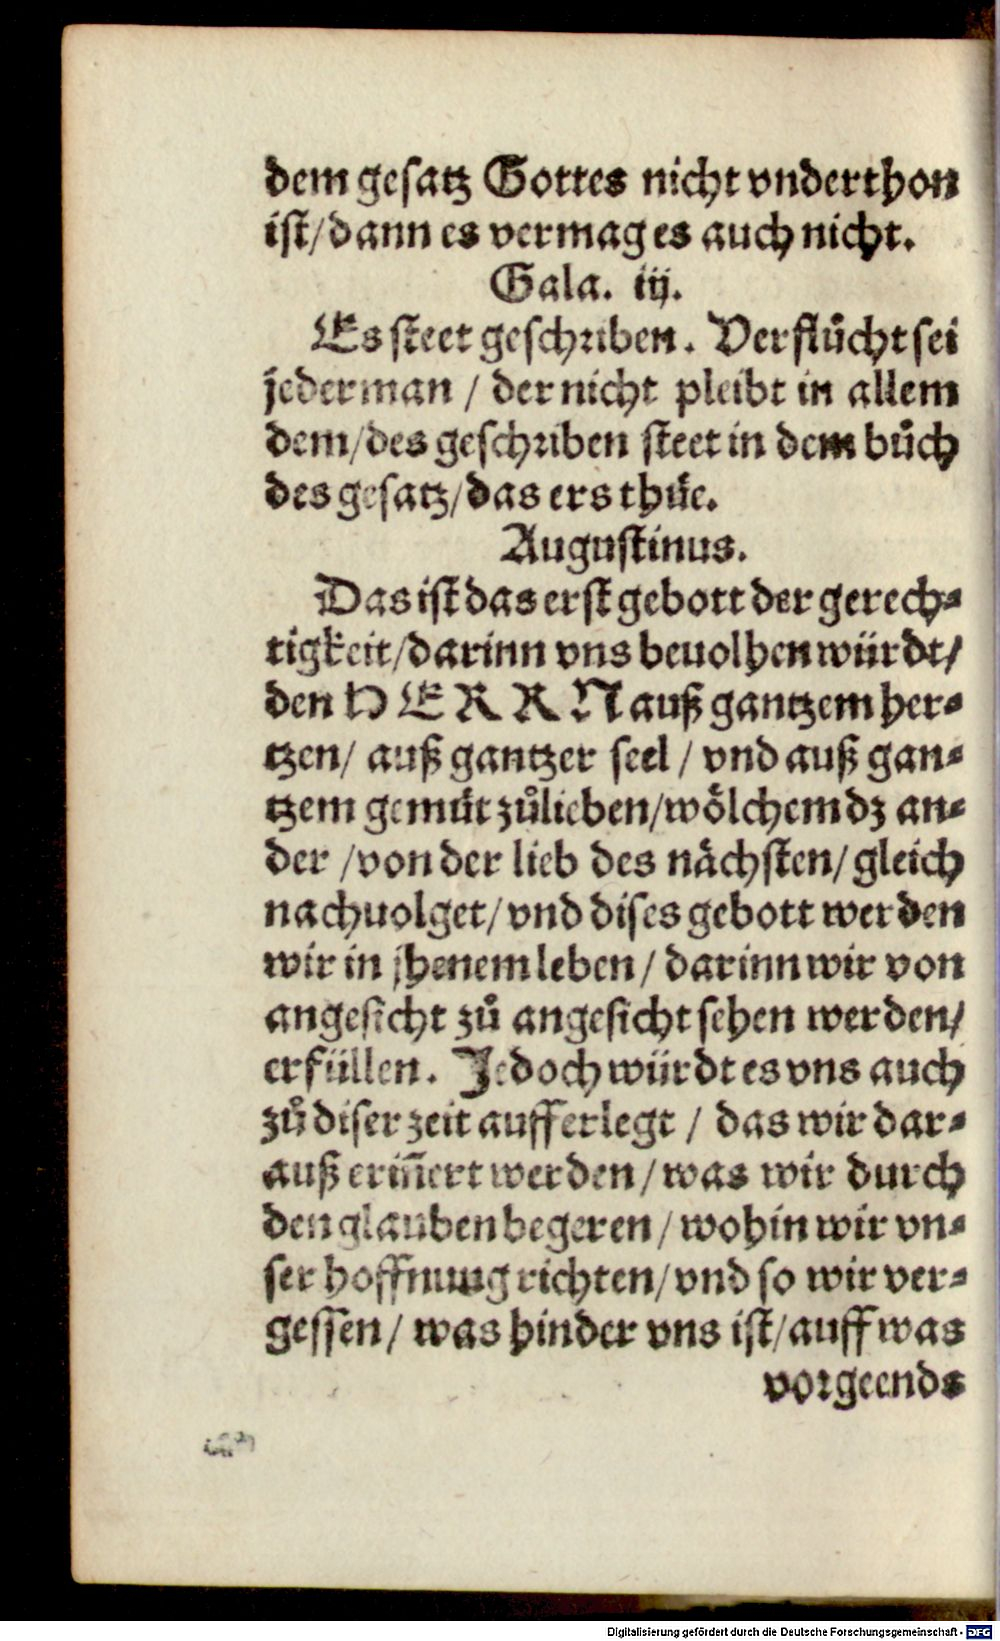 dem gesatz Gottes nicht vnderthon
ist/dann es vermag es auch nicht.
Gala. iij.
Es steet geschriben. Verflůcht sei
jederman / der nicht pleibt in allem
dem/des geschriben steet in dem bůch
des gesatz/das ers thüe.
Augustinus.
Das ist das erst gebott der gerech-
tigkeit/darinn vns beuolhen würdt/
den HERRN auß gantzem her-
tzen/ auß gantzer seel / vnd auß gan-
tzem gemüt zůlieben/wölchem dz an-
der /von der lieb des nächsten/ gleich
nachuolget/ vnd dises gebott werden
wir in jhenem leben/ darinn wir von
angesicht zů angesicht sehen werden/
erfüllen. Jedoch würdt es vns auch
zů diser zeit aufferlegt / das wir dar-
auß eriñert werden/ was wir durch
den glauben begeren/ wohin wir vn-
ser hoffnung richten/ vnd so wir ver-
gessen/ was hinder vns ist/auff was
vorgeends
Digitalisierung gefördert durch die Deutsche Forschungsgemeinschaft - DFG